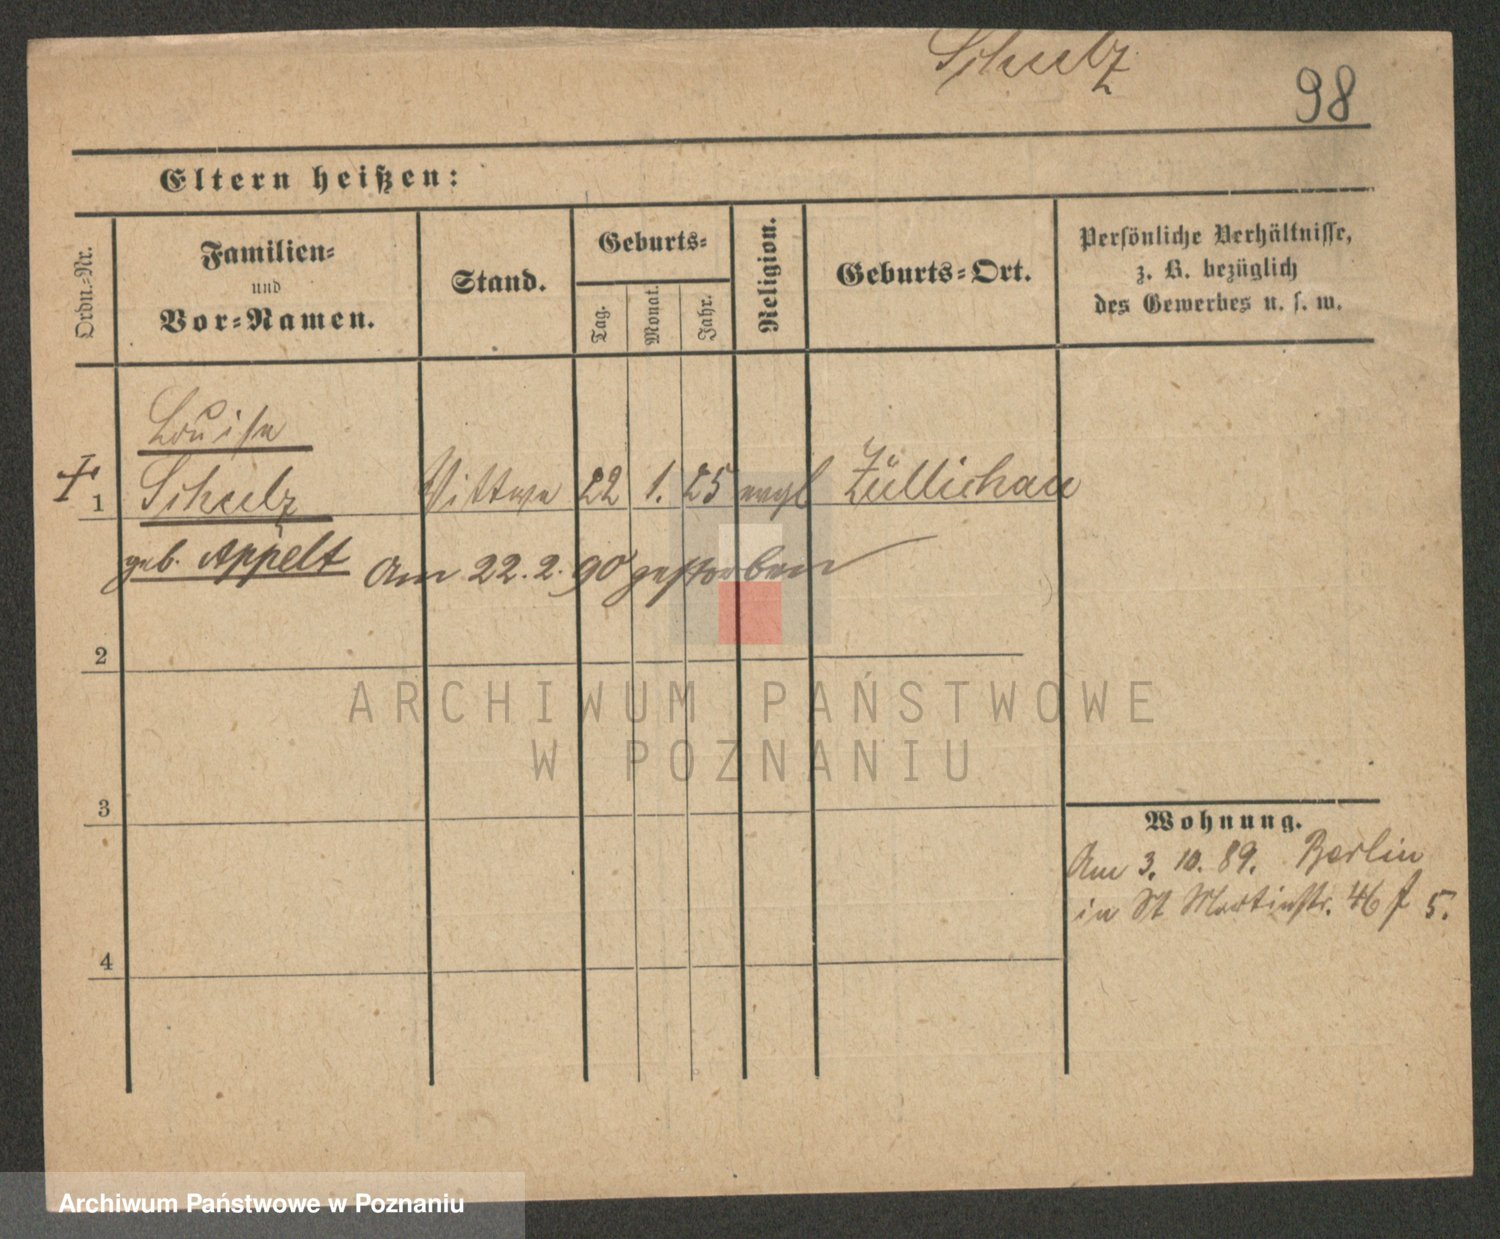 Schulz
98
Eltern heißen:
Ordn.-Nr.
Familien-
und
Vor-Namen.
Stand.
Geburts-
Tag.
Monat.
Jahr.
Religion.
Geburts-Ort.
Persönliche Verhältnisse,
z. B. bezüglich
des Gewerbes u. s. w.
Louise
1 Schulz Wittwe 22 1. 25 evgl Züllichau
geb. Appelt Am 22.2.90 gestorben
2
ARCHIWUM PAŃSTWOWE
W POZNANIU
3
Wohnung.
Am 3. 10. 89. Berlin
in St Martinstr. 46 5.
4
Archiwum Państwowe w Poznaniu